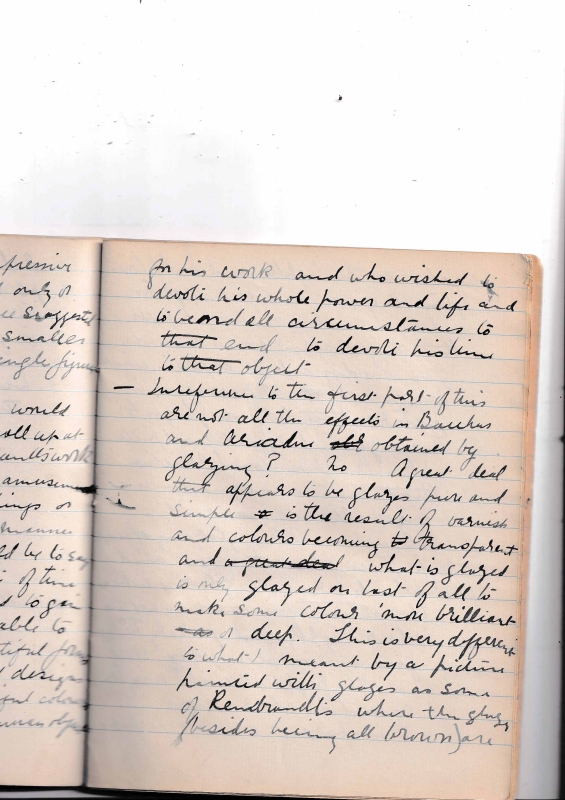 pressive
only or
suggeste
smaller
single figure
would
all up at
amusem
ings or
manner
ld be to say
of time
to gain
able to
tiful form
design
ful colour
human obje
for his work and who wished to
devote his whole power and life and
to bend all circumstances to
that end to devote his time
to that object
— In reference to the first part of this
are not all the effects in Bacchus
and Ariadne obtained by
glazing? No A great deal
that appears to be glazes pure and
simple is the result of varnish
and colours becoming to transparent
and a great deal what is glazed
is only glazed on last of all to
make some colour more brilliant
as or deep. This is very different
to what I meant by a picture
painted with glazes as some
of Rembrandts where the glazes
(besides being all brown) are